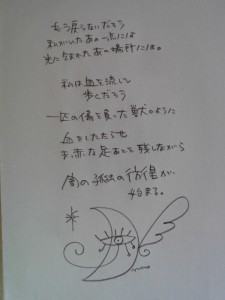 もう戻らないだろう
私がいたあの一点には
光に包まれたあの場所には。
私は血を流して
歩くだろう
一匹の傷を負った獣のように
血をしたたらせ
真赤な足あとを残しながら
闇の孤独の彷徨が、
始まる。